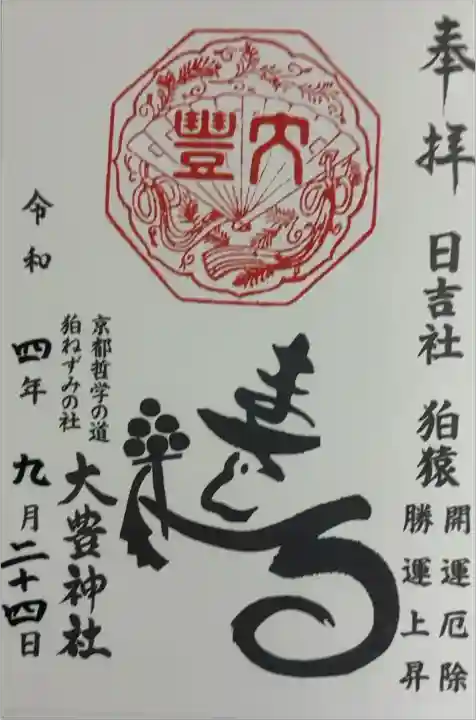 奉拝 日吉社 狛猿
開運厄除
勝運上昇
大豐
まさる
京都哲学の道
狛ねずみの社
大豊神社
令和四年九月二十四日